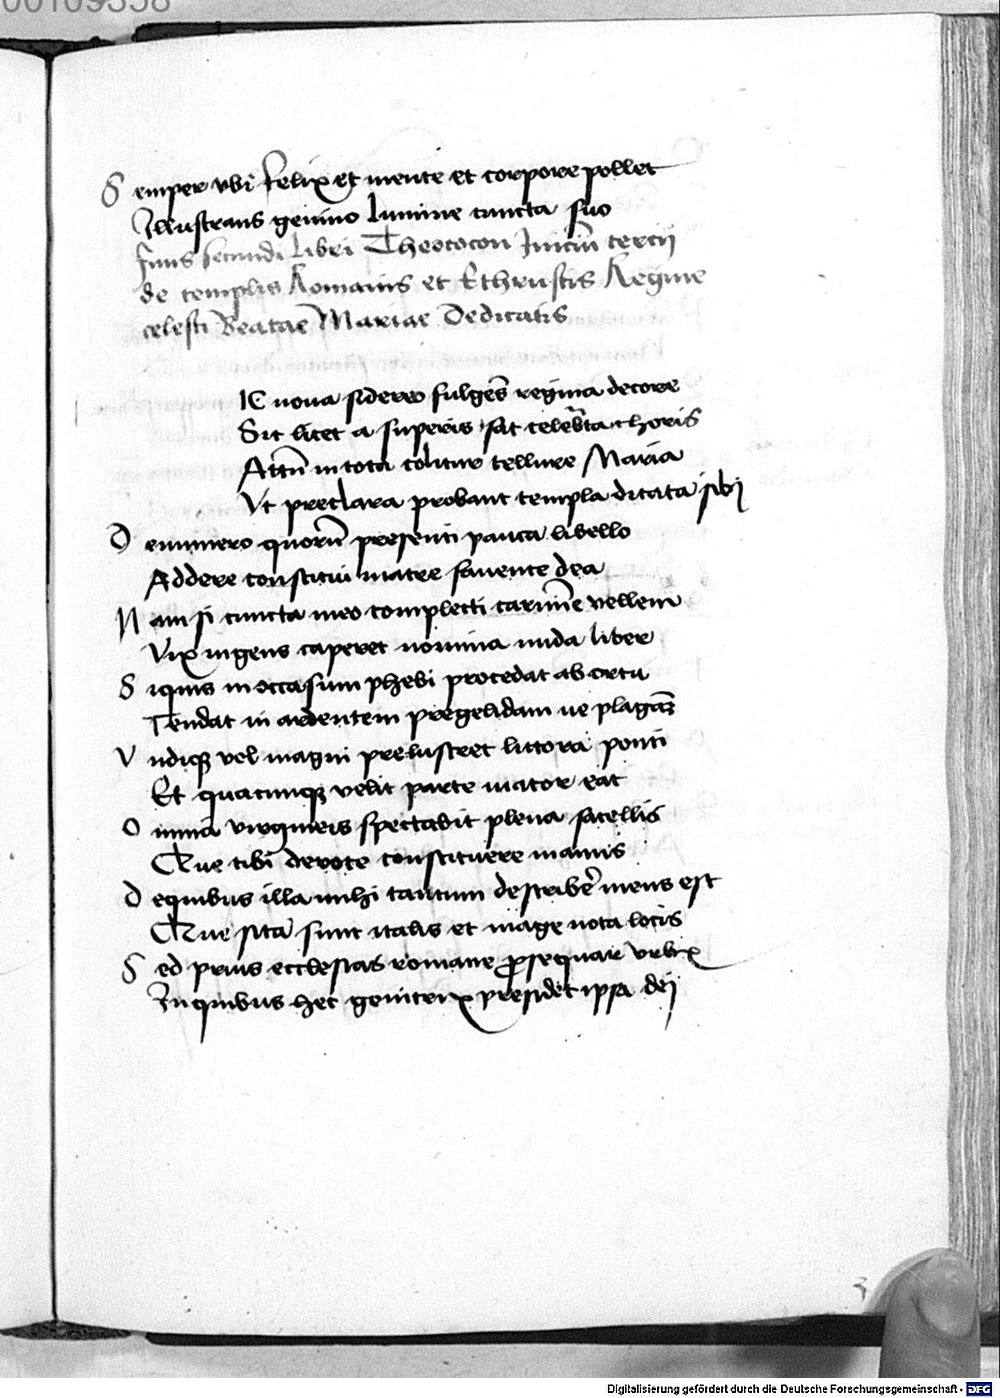 00109358
Semper vbi felix et mente et corpore pollet
Illustrans gemino lumine cuncta suo
finis secundi Libri Theotocon Iniciū tercij
de templis Romanis et Ethruscis Regine
celesti Beatae Mariae Dedicatis
IC noua sidereo fulgēs regina decore
Sit licet a superis sat celebrata choris
Attn̄ in tota colitur tellure Maria
Vt preclara probant templa dicata sibj
Denumero quorū presenti pauca libello
Addere constitui matre fauente dea
Nam si cuncta meo complecti carmīe vellem
Vix ingens caperet nomina nuda liber
Siquis in occasum phebi procedat ab ortu
Tendat in ardentem pregelidam ue plagā
Vndiqꝫ vel magni prelustret littora ponti
Et quacunqꝫ velit parte viator eat
Omnia virgineis spectabit plena sacellis
Que tibi deuote constituere manus
Dequibus illa mihi tantum describer̄ mens est
Que sita sunt italis et mage nota locis
Sed prius ecclesias romane ꝓsequar vrbis
Inquibus hec genitrix presidet ipsa dej
3
Digitalisierung gefördert durch die Deutsche Forschungsgemeinschaft - DFG